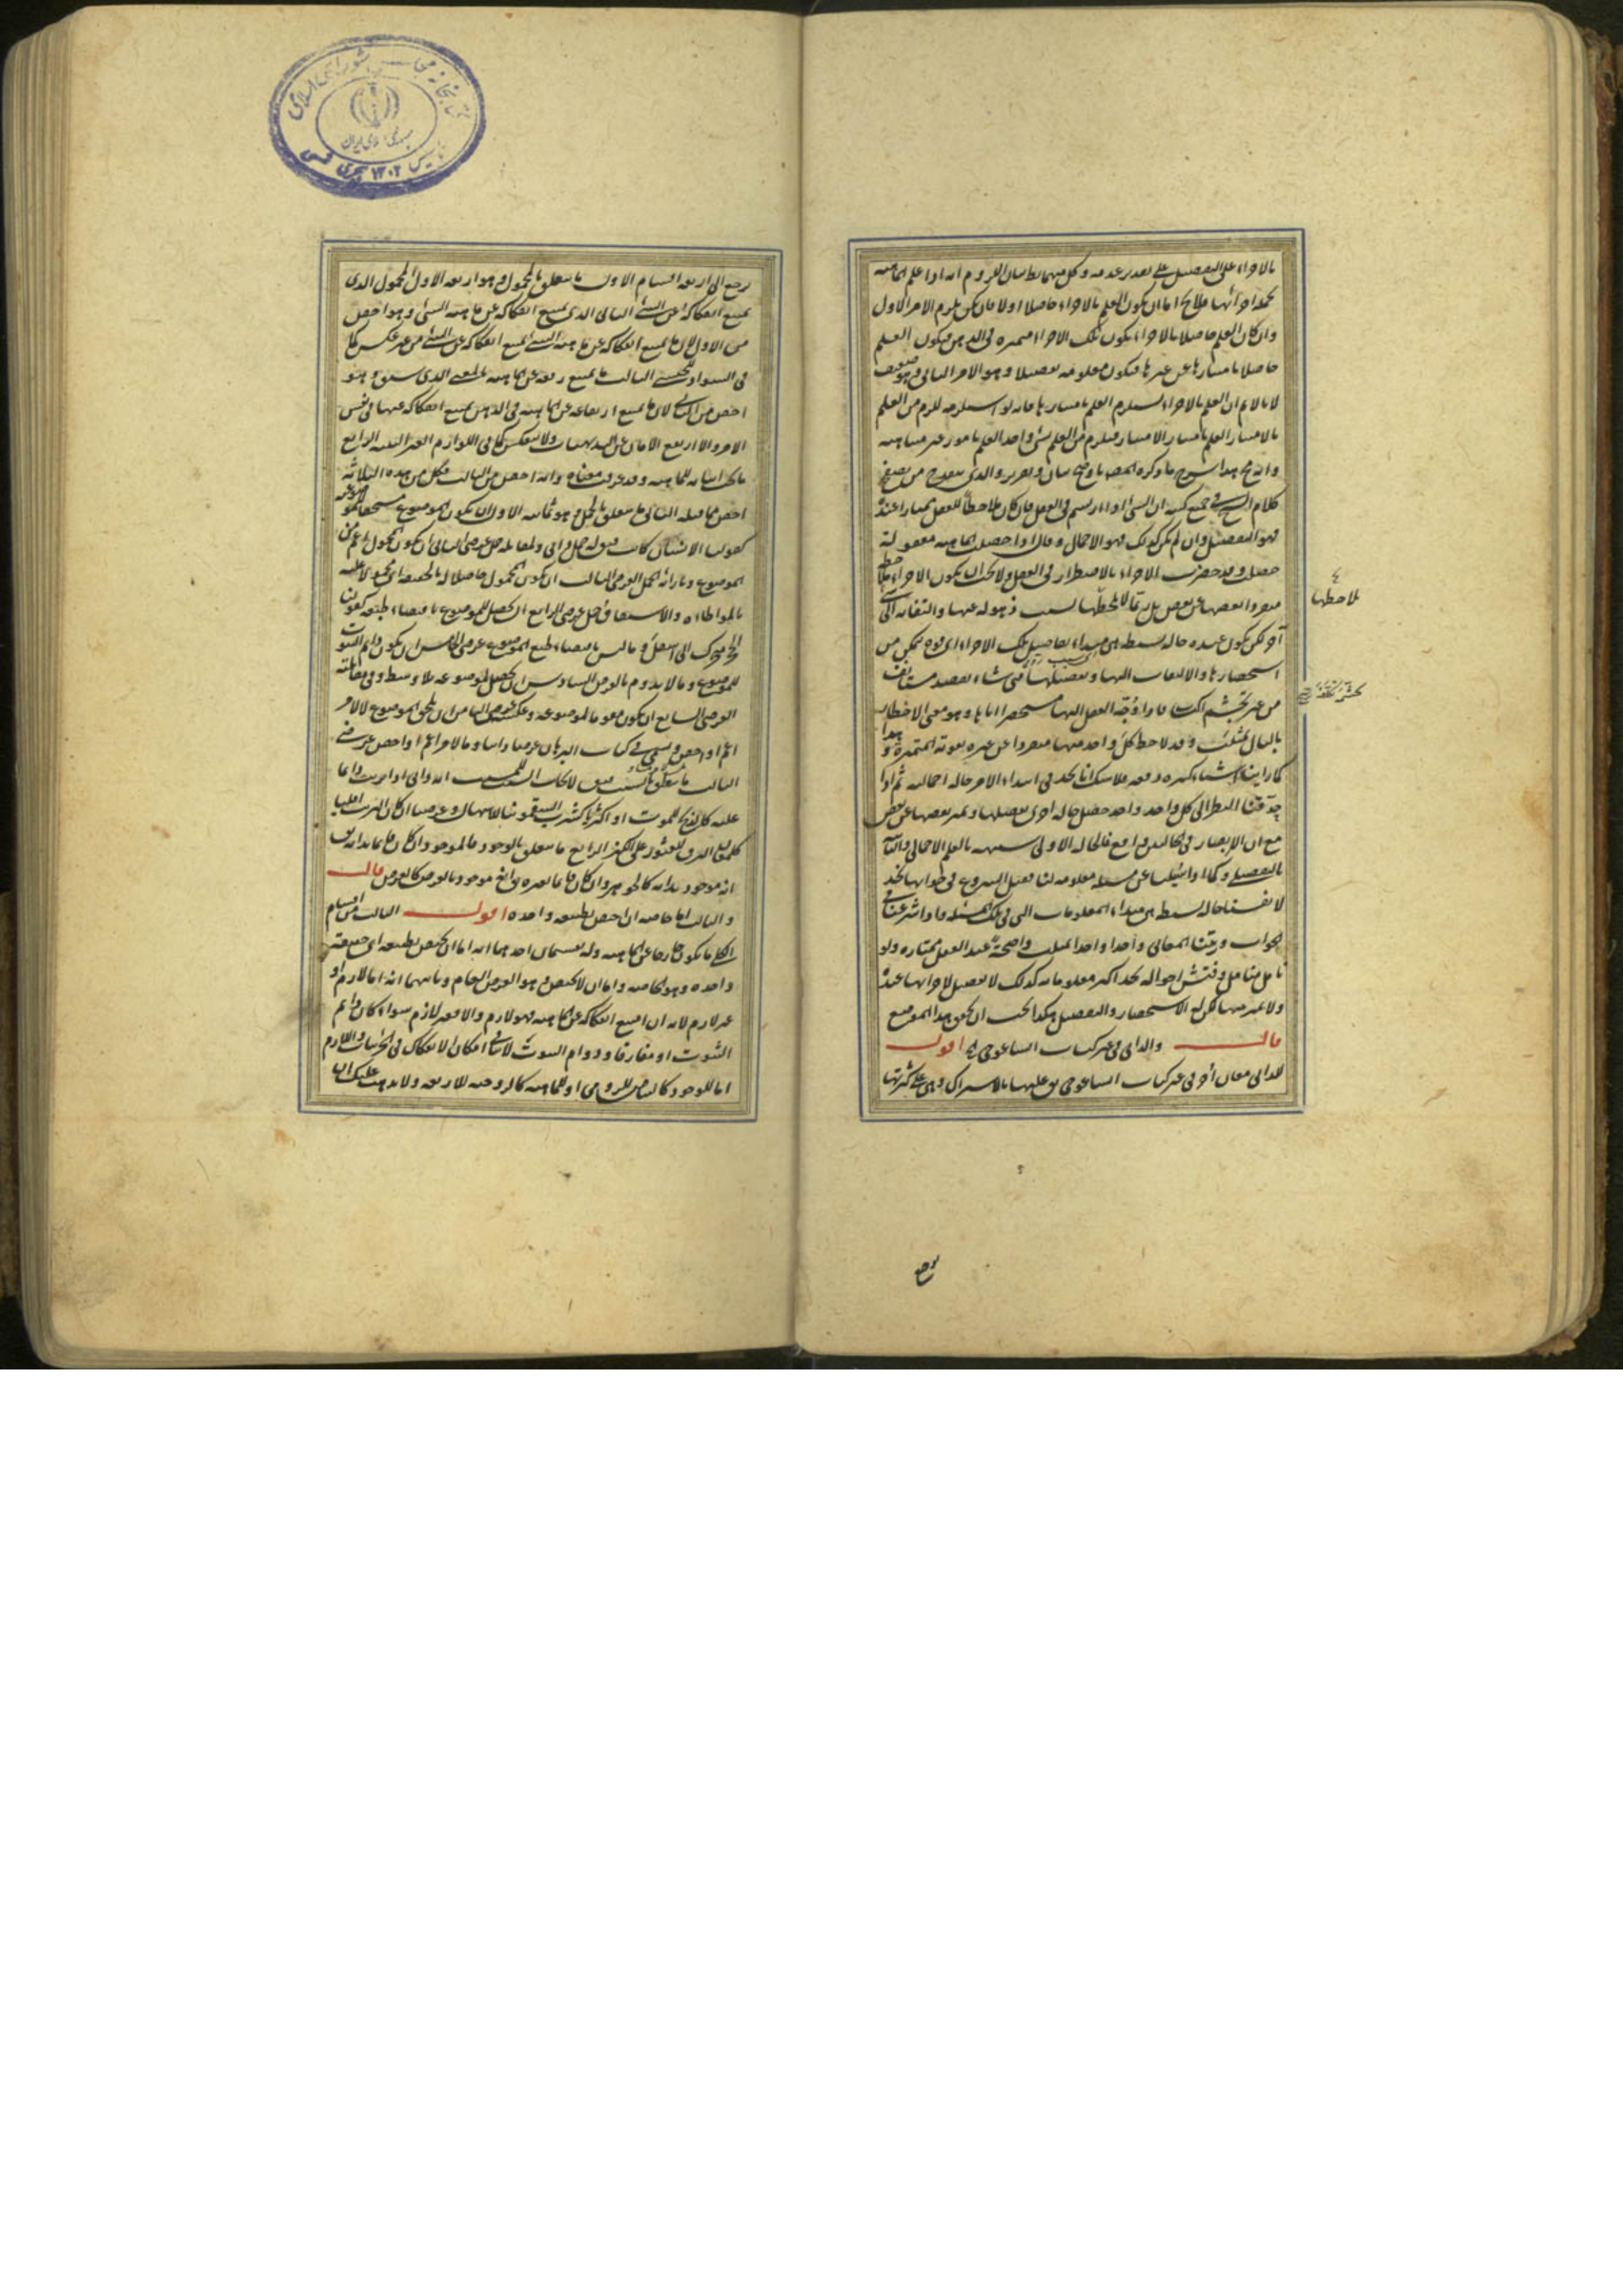 بالاجزاء على التفصيل على تقدير عدمه وكل منهما بط بيان اللزوم انه اذا علم الماهية
بجملة اجزائها فلا يخ اما ان يكون العلم بالاجزاء حاصلا اولا فان لم يكن يلزم الامر الاول
وان كان العلم حاصلا بالاجزاء يكون تلك الاجزاء متميزة في الذهن فيكون العلم
حاصلا بامتيازها عن غيرها فيكون معلومة تفصيلا وهو الامر الثاني وهو ضعيف
لانا لا نم ان العلم بالاجزاء يستلزم العلم بامتيازها فانه لو استلزمه للزم من العلم
بالامتياز العلم بامتياز الامتياز فيلزم من العلم بشئ واحد العلم بامور غير متناهية
كلام الشيخ في جميع كتبه ان الشئ اذا ارتسم في العقل فان كان ملاحظا للعقل ممتازا عنده
فهو التفصيل وان لم يكن كذلك فهو الاجمال وقال اذا حصلت الماهية معقولة
حصل وقد حضرت الاجزاء بالاضطرار في العقل ولا يجب ان يكون الاجزاء ملاحظة
مفروزا بعضها عن بعض بل ربما لا يلحظها لسبب ذهوله عنها والتفاته الى
آخر لكن يكون عنده حالة بسيطة هي مبداء تفاصيل تلك الاجزاء اى قوة تمكن من
استحضارها والالتفات اليها وتفصيلها متى شاء بقصد مستانف
من غير تجشم اكتساب فاذا وجه العقل اليها مستحضرا اياها وهو معنى الاخطار
بالبال تمثلت وقد لاحظ كل واحد منها مفروزا عن غيره بقوته المتميزة وهذا
كما راينا اشياء كثيرة دفعة فلا شك انا نجد في ابتداء الامر حالة اجمالية ثم اذا
حدقنا النظر الى كل واحد واحد حصل حالة اخرى بفصلها وتميز بعضها عن بعض
مع ان الابصار في الحالين واقع فالحالة الاولى شبيهة بالعلم الاجمالى والثانية
بالتفصيلي وكما اذا سئلنا عن مسئلة معلومة لنا فقبل الشروع في جوابها نجد
لانفسنا حالة بسيطة هي مبداء المعلومات التى في تلك المسئلة واذا شرعنا في
الجواب ورتبنا المعانى واحدا واحدا تمثلت واضحة عند العقل ممتازة ولو
تامل متامل وفتش احواله يجد اكثر معلوماته كذلك لا تفصيل لاجزائها عنده
ولا تميز منها لكن له الاستحضار والتفصيل هكذا يجب ان يحقق هذا الموضع
قال والذاتى في غير كتاب ايساغوجى الخ اقول
للذاتى معان أخر في غير كتاب ايساغوجى يق عليها بالاشتراك وهى على كثرتها
لاحظها
يرجع الى اربعة اقسام الاول ما يتعلق بالمحمول وهو اربعة الاول المحمول الذى
يمتنع انفكاكه عن الشئ الثانى الذى يمتنع انفكاكه عن ماهية الشئ وهو اخص
من الاول لان ما يمتنع انفكاكه عن ماهية الشئ يمتنع انفكاكه عن الشئ من غير عكس كما
في السواد للحبشى الثالث ما يمتنع رفعه عن الماهية بالمعنى الذى سبق وهو
اخص من الثانى لان ما يمتنع ارتفاعه عن الماهية في الذهن يمتنع انفكاكه عنها في نفس
الامر والا ارتفع الامان عن البديهيات ولا ينعكس كما في اللوازم الغير البينة الرابع
ما يجب اثباته للماهية وقد عرفت معناه وانه اخص من الثالث فكل من هذه الثلاثة
اخص مما قبله الثانى ما يتعلق بالحمل وهو ثمانية الاول ان يكون الموضوع مستحقا للموضوعية
كقولنا الانسان كاتب فيق له حمل ذاتى ولمقابله حمل عرضى الثانى ان يكون المحمول اعم من
الموضوع وبازائه الحمل العرضى الثالث ان يكون المحمول حاصلا له بالحقيقة اى محمولا عليه
بالمواطاة والاشتقاق حمل عرضى الرابع ان يحصل للموضوع باقتضاء طبعه كقولنا
الحجر متحرك الى اسفل وما ليس باقتضاء طبع الموضوع عرضى الخامس ان يكون دائم الثبوت
للموضوع وما لا يدوم بالعرض السادس ان يحصل لموضوعه بلا واسطة وفي مقابلته
العرضى السابع ان يكون مقوما لموضوعه وعكسه عرضى الثامن ان يلحق الموضوع لا لامر
اعم او اخص ويسمى في كتاب البرهان عرضا ذاتيا وما لامر اعم او اخص عرضى
الثالث ما يتعلق بالسبب فيق لايجاب السبب للمسبب انه ذاتى اذا ترتب دائما
عليه كالذبح للموت او اكثريا كشرب السقمونيا للاسهال وعرضى ان كان الترتب اقليا
كلمعان البرق للعثور على الكنز الرابع ما يتعلق بالوجود فالموجود ان كان قائما بذاته يق
انه موجود بذاته كالجوهر وان كان قائما بغيره يق انه موجود بالعرض كالعرض قال
والثالث اما خاصة ان اختص بطبيعة واحدة اقول الثالث من اقسام
الكلى ما يكون خارجا عن الماهية وله تقسيمان احدهما انه اما ان يختص بطبيعة اى حقيقة
واحدة وهو الخاصة واما ان لا يختص وهو العرض العام وثانيهما انه اما لازم او
غير لازم لانه ان امتنع انفكاكه عن الماهية فهو لازم والا فغير لازم سواء كان دائم
الثبوت او مفارقا ودوام الثبوت لا ينافى امكان الانفكاك في الجزئيات واللازم
اما للوجود كالبياض للرومى او للماهية كالزوجية للاربعة ولا يذهب عليك ان